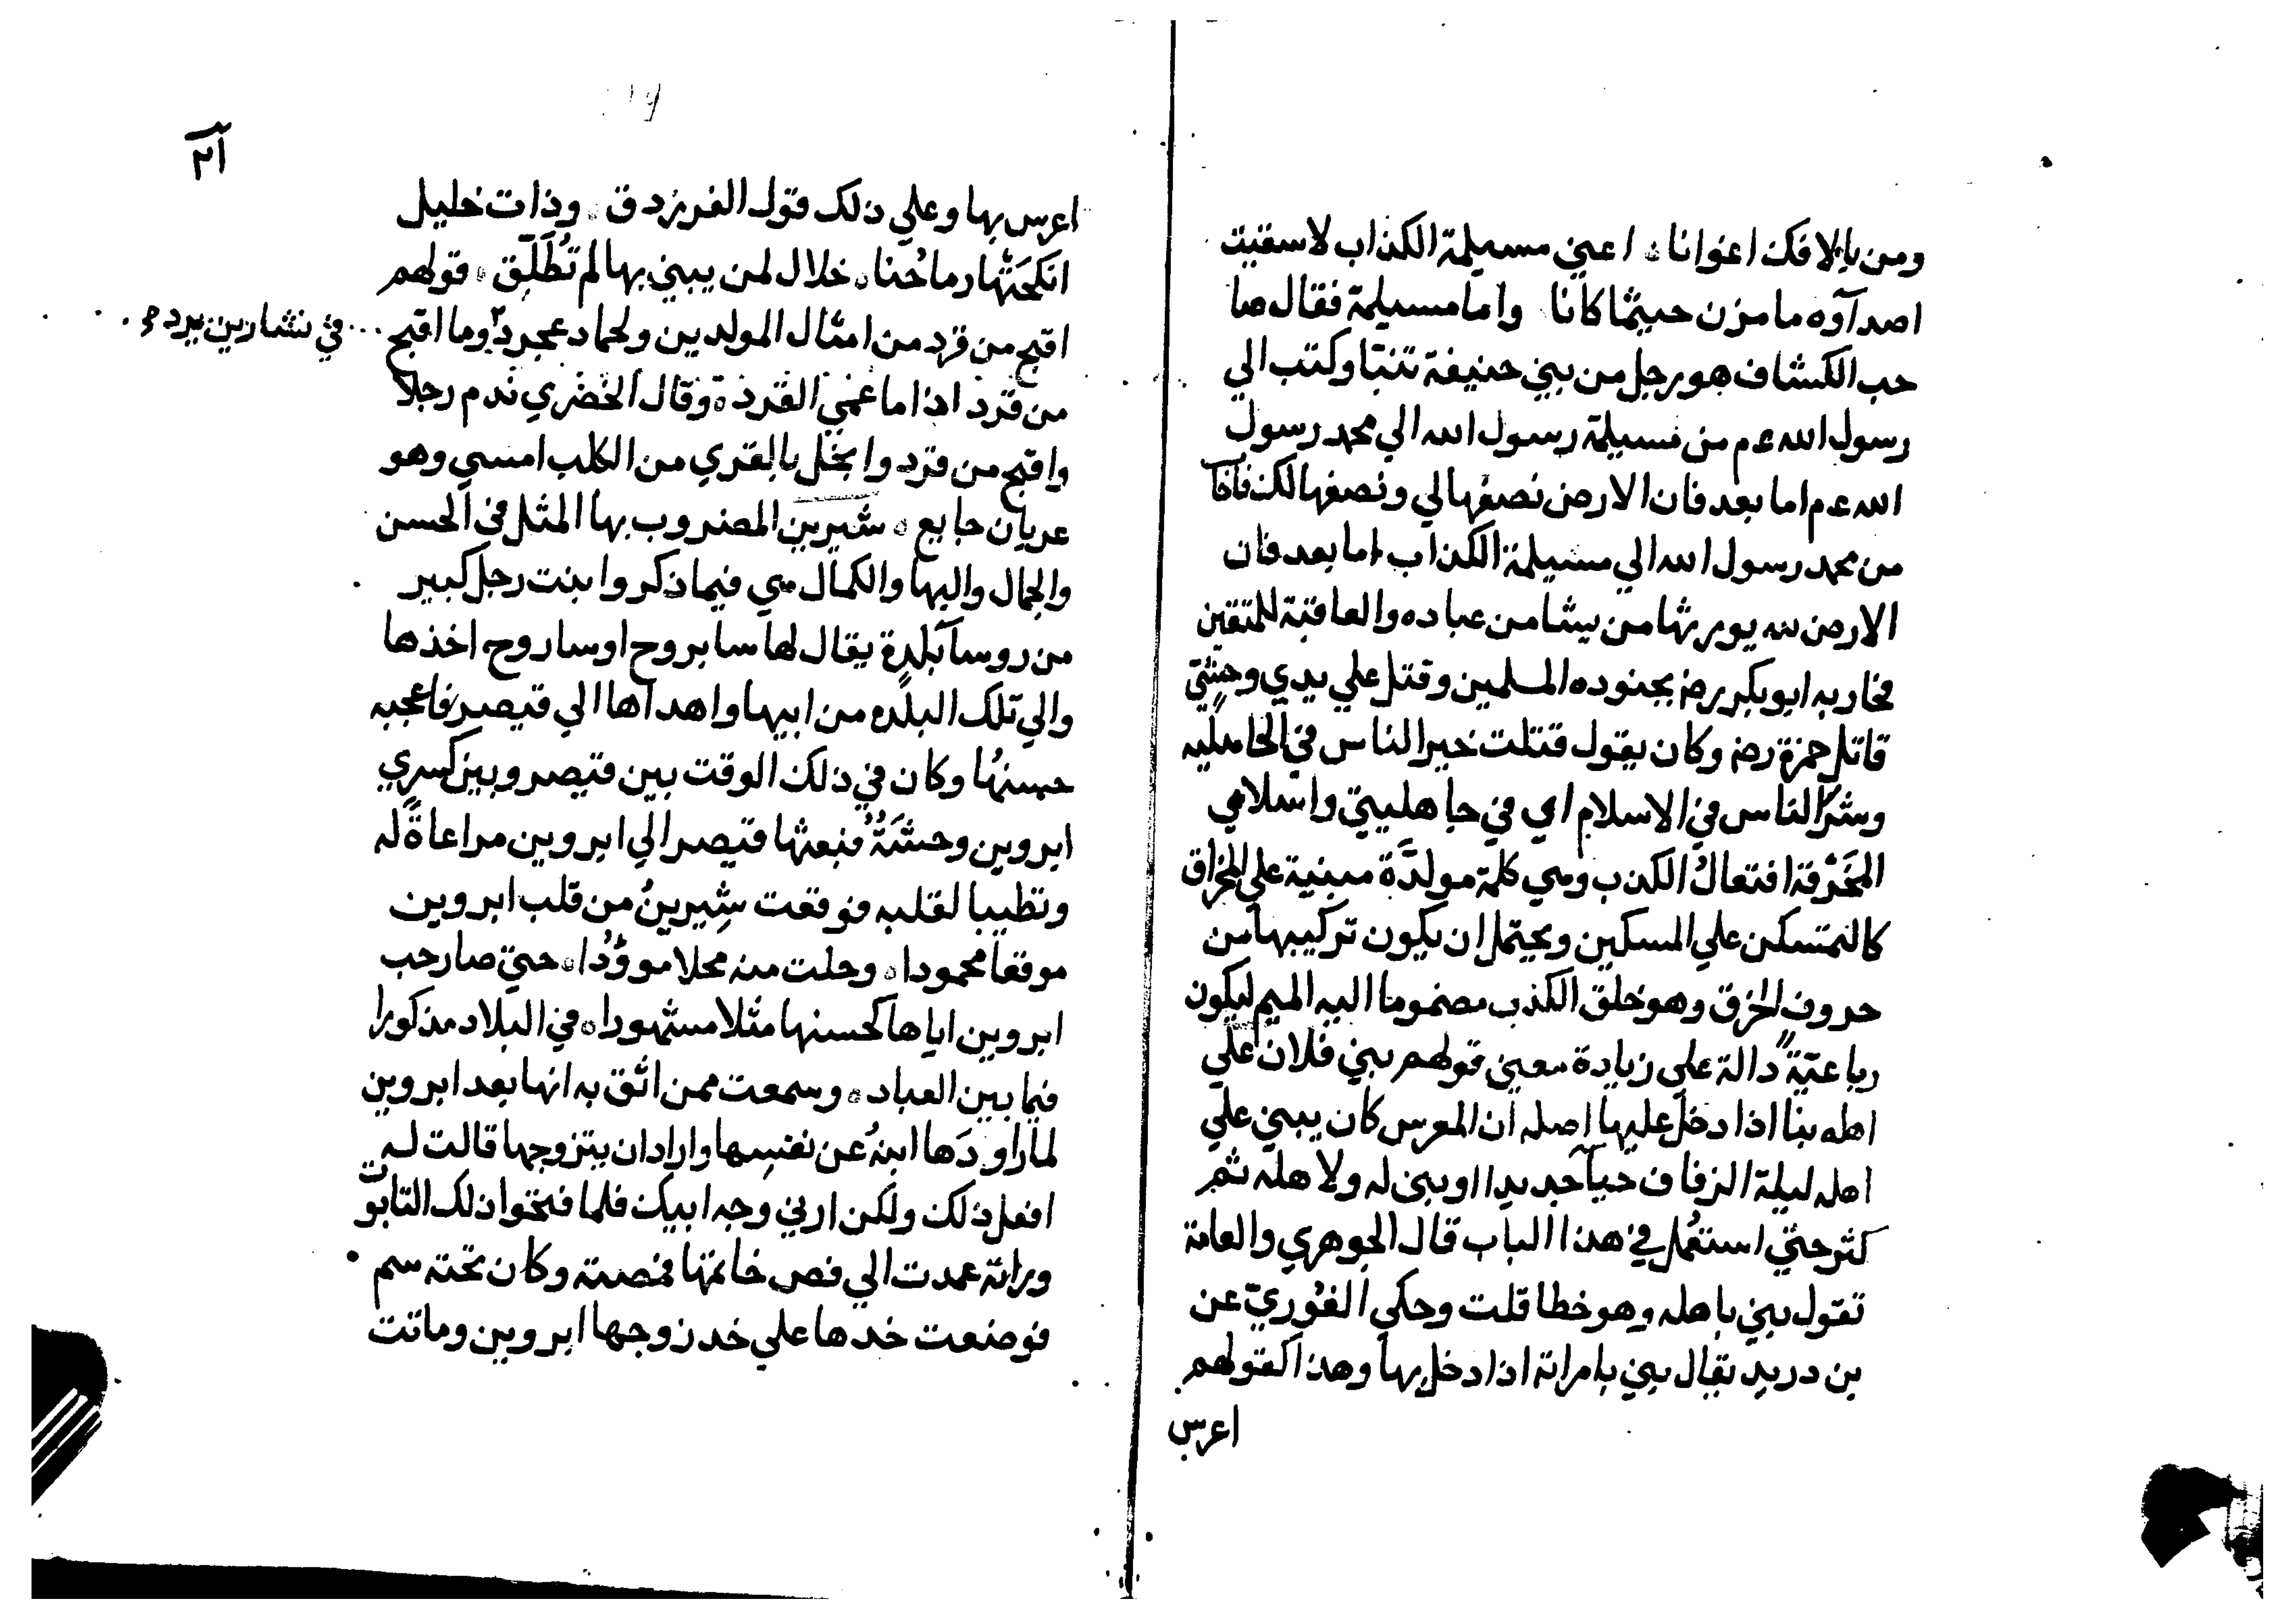 ومن بالافك اغوانا ۞ اعني مسيلمة الكذاب لا سقيت
اصداؤه ما مزن حيثما كانا واما مسيلمة فقال صا
حب الكشاف هو رجل من بني حنيفة تنبا وكتب الي
رسول الله عم من مسيلمة رسول الله الي محمد رسول
الله عم اما بعد فان الارض نصفها لي ونصفها لك
من محمد رسول الله الي مسيلمة الكذاب اما بعد فان
الارض لله يورثها من يشا من عباده والعاقبة للمتقين
فحاربه ابو بكر رض بجنوده المسلمين وقتل علي يدي وحشي
قاتل حمزة رض وكان يقول قتلت خير الناس في الجاهليه
وشرّ الناس في الاسلام اي في جاهليتي واسلامي
المَخْرقة افتعال الكذب وهي كلمة مولَّدة مبنية علي المخراق
كالتمسكن علي المسكين ويحتمل ان يكون تركيبها من
حروف الخرق وهو خلق الكذب مضموما اليه الميم ليكون
رباعيّة دالة علي زيادة معني قولهم بني فلان علي
اهله بنا اذا دخل عليها اصله ان المعرس كان يبني علي
اهله ليلة الزفاف خبآ جديدا او يبنى له ولاهله ثم
كثر حتي استعمل في هذا الباب قال الجوهري والعامة
تقول بني باهله وهو خطا قلت وحكي الغوريّ عن
بن دريد يقال بني بامراته اذا دخل بها وهذا كقولهم
اعرس
٢١
اعرس بها وعلي ذلك قول الفرزدق ۞ وذات خليل
انكحَتْها رماحُنا ۞ حلال لمن يبني بها لم تُطَلَّق ۞ قولهم
اقبح من قرد من امثال المولدين ولحماد عجرد وما اقبح
في بشار بن برد
من قرد اذا ما عمي القرد ۞ وقال الخضري ندم رجلا
واقبح من قرد وابخل بالقري من الكلب امسي وهو
عريان جايع ۞ شيرين المضروب بها المثل في الحسن
والجمال والبها والكمال هي فيما ذكروا بنت رجل كبير
من روسآ بلدة يقال لها سابروح او ساروح اخذها
والي تلك البلده من ابيها واهداها الي قيصر فاعجبه
حسنُها وكان في ذلك الوقت بين قيصر وبين كسري
ابروين وحشَةٌ فبعثها قيصر الي ابروين مراعاةً له
وتطييبا لقلبه فوقعت شِيرينُ من قلب ابروين
موقعا محمودا ۞ وحلت منه محلا مودُودا ۞ حتي صار حب
ابروين اياها لحسنها مثلا مشهورا ۞ في البلاد مذكورا
فيما بين العباد ۞ وسمعت ممن اثق به انها بعد ابروين
لما راودَها ابنهُ عن نفسها واراد ان يتزوجها قالت له
افعل ذلك ولكن ارني وجه ابيك فلما فتحوا ذلك التابوت
وراته عمدت الي فص خاتمها فمصته وكان تحته سم
فوضعت خدها علي خد زوجها ابروين وماتت